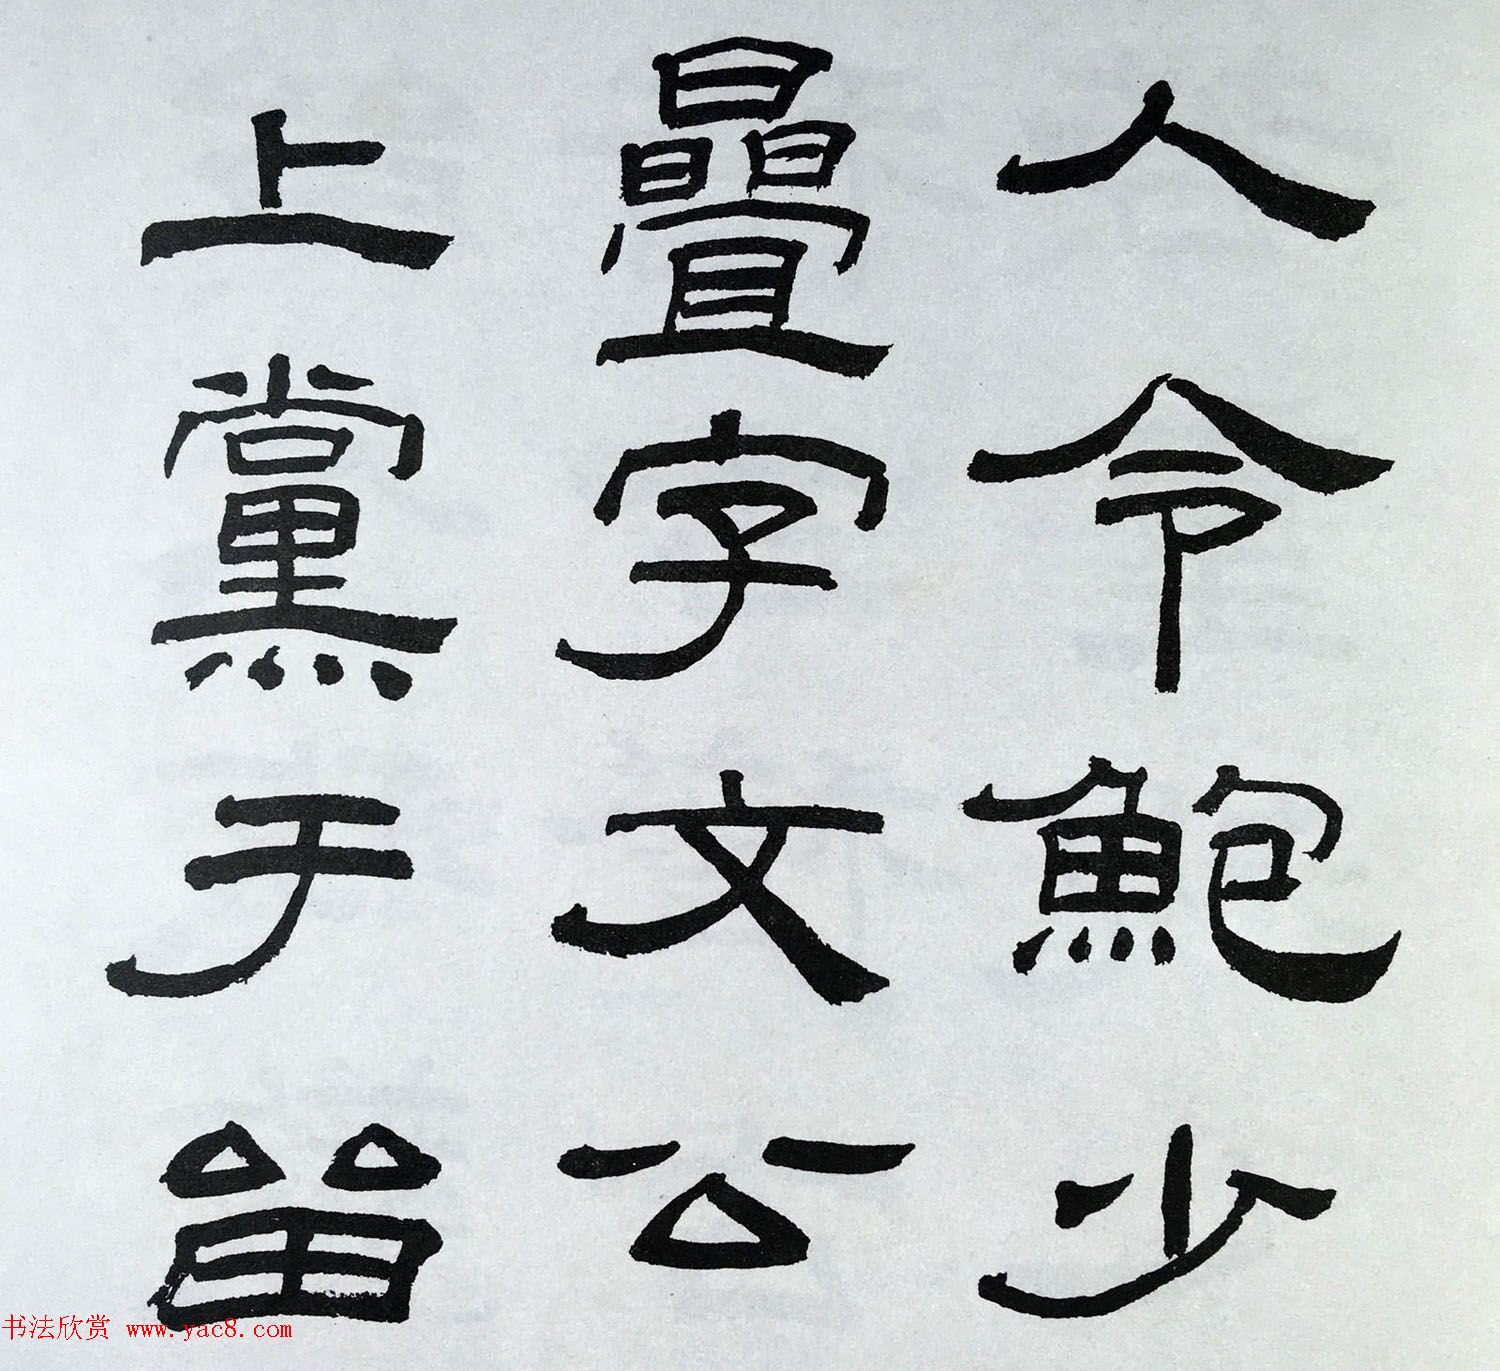 人令鮑少
疊字文公
上黨于留
书法欣赏 www.yac8.com